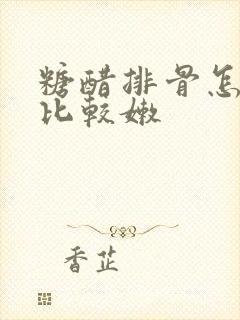 糖醋排骨怎
比较嫩
香芷